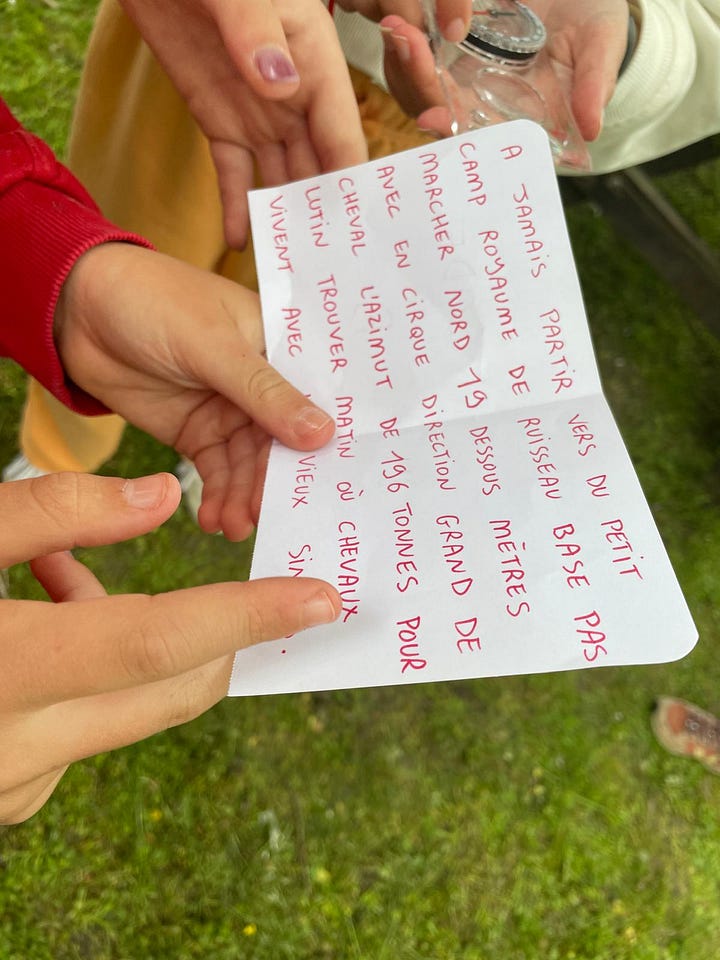 A JAMAIS PARTIR VERS DU PETIT
CAMP ROYAUME DE RUISSEAU BASE PAS
MARCHER NORD 19 DESSOUS MÈTRES
AVEC EN CIRQUE DIRECTION GRAND DE
CHEVAL L'AZIMUT DE 196 TONNES POUR
LUTIN TROUVER MATIN OÙ CHEVAUX
VIVENT AVEC VIEUX